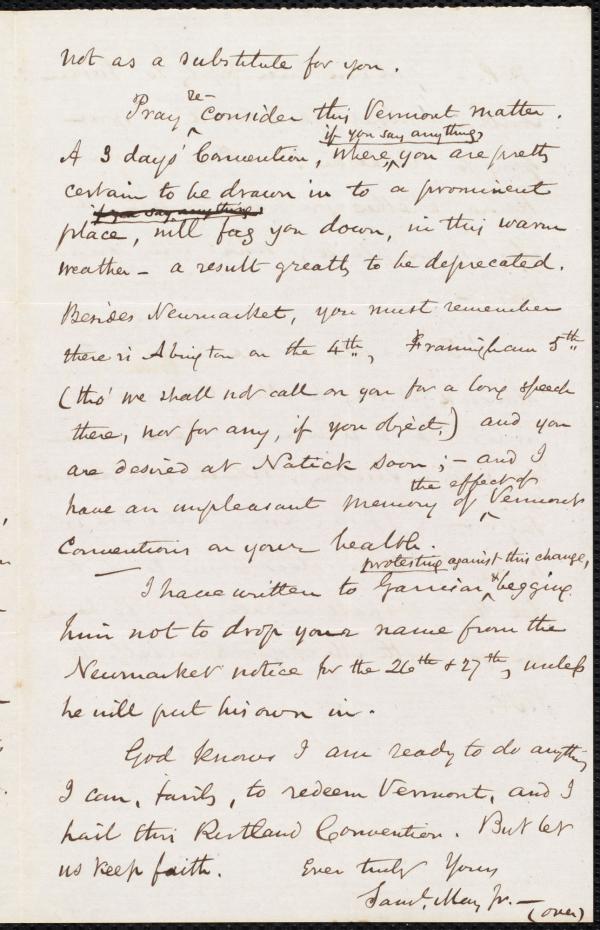 not as a substitute for you.
Pray re-consider this Vermont matter.
if you say anything,
A 3 days' Convention, where, you are pretty
certain to be drawn in to a prominent
if you say anything
place, will fag you down, in this warm
weather - a result greatly to be deprecated.
Besides Newmarket, you must remember
there is Abington on the 4th, Framingham 5th
(tho' we shall not call on you for a long speech
there, nor for any, if you object,) and you
are desired at Natick soon; - and I
the effect of
have an unpleasant memory of Vermont
Conventions on your health.
protesting against this change,
I have written to Garrison & begging
him not to drop your name from the
Newmarket notice for the 26th & 27th, unless
he will put his own in.
God knows I am ready to do anything
I can, fairly, to redeem Vermont, and I
hail this Rutland Convention. But let
us keep faith. Ever truly Yours
Saml. May Jr. -
(over)